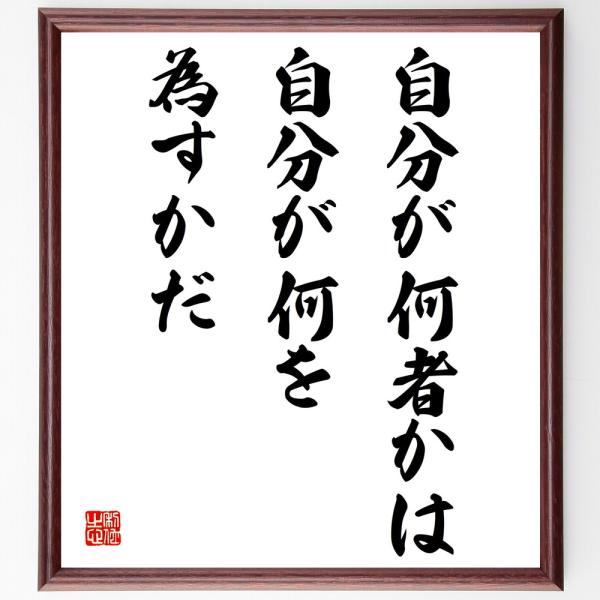 自分が何者かは
自分が何を
為すかだ